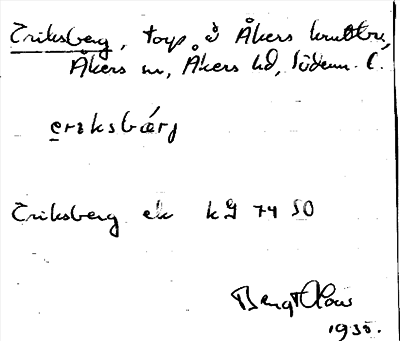 Eriksberg, torp å Åkers krutbr.,
Åkers sn, Åkers hd, Söderm. l.
eriksbárj
Eriksberg ek kg 74 50
Bengt
1935.